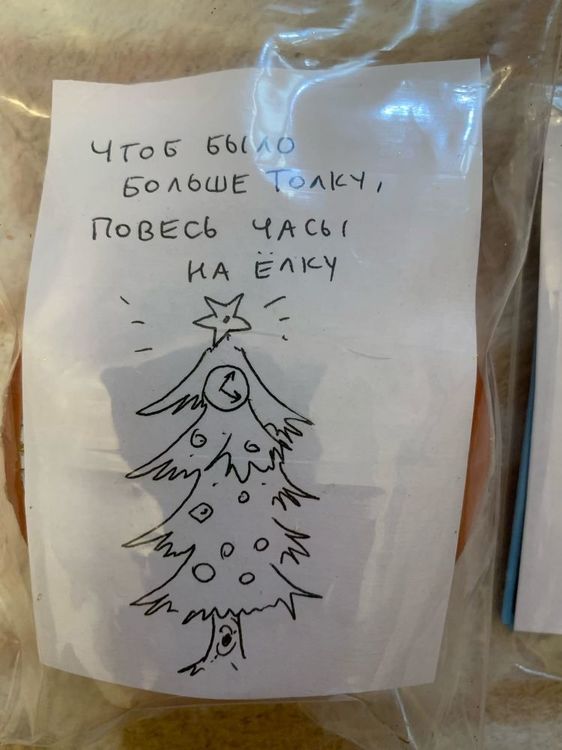 ЧТОБ БЫЛО
БОЛЬШЕ ТОЛКУ,
ПОВЕСЬ ЧАСЫ
НА ЁЛКУ